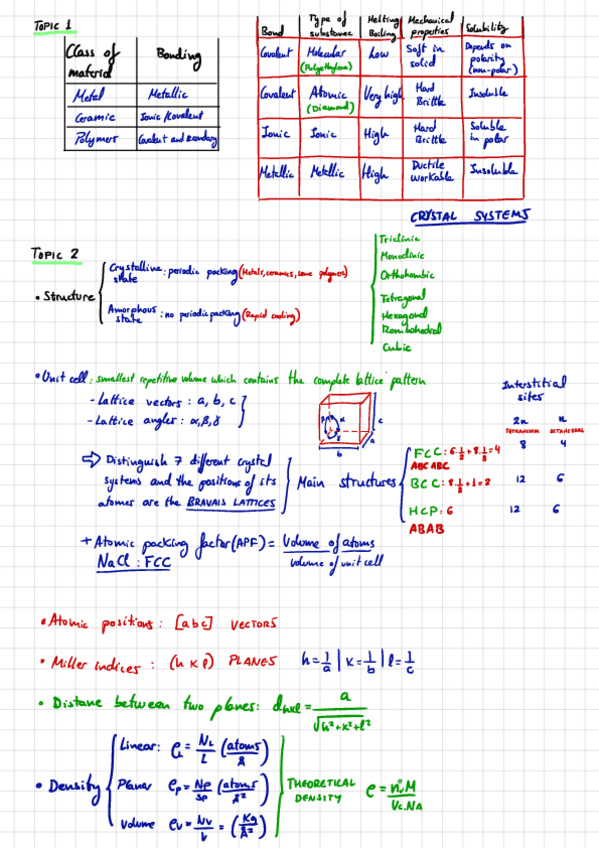 TOPIC 1
Class of material | Bonding
Metal | Metallic
Ceramic | Ionic/Kovalent
Polymers | Covalent and Secondary
Bond | Type of substance | Melting Boiling | Mechanical properties | Solubility
Covalent | Molecular (Polyethylene) | Low | Soft in solid | Depends on polarity (non-polar)
Covalent | Atomic (Diamond) | Very high | Hard Brittle | Insoluble
Ionic | Ionic | High | Hard Brittle | Soluble in polar
Metallic | Metallic | High | Ductile Workable | Insoluble
CRYSTAL SYSTEMS
Triclinic
Monoclinic
Orthohombic
Tetragonal
Hexagonal
Rombohedral
Cubic
TOPIC 2
• Structure
Crystalline state : periodic packing (Metals, ceramics, some polymers)
Amorphous state : no periodic packing (Rapid cooling)
• Unit cell : smallest repetitive volume which contains the complete lattice pattern
- Lattice vectors : a, b, c
- Lattice angles : α, β, γ
β α γ
c
a
b
Interstitial sites
2n n
TETRAHEDRAL OCTAHEDRAL
⇒ Distinguish 7 different crystal
systems and the positions of its
atoms are the BRAVAIS LATTICES
Main structures
FCC : 6·1/2 + 8·1/8 = 4 8 4
ABC ABC
BCC : 8·1/8 + 1 = 2 12 6
HCP : 6 12 6
ABAB
+ Atomic packing factor (APF) = Volume of atoms / Volume of unit cell
NaCl : FCC
• Atomic positions : [a b c] VECTORS
• Miller indices : (h k l) PLANES h = 1/a | k = 1/b | l = 1/c
• Distane between two planes : dhkl = a / √h²+k²+l²
• Density
Linear : ρL = NL/L (atoms/Å)
Planar ρp = Np/Sp (atoms/Å²)
Volume ρv = Nv/V = (Kg/Å²)
THEORETICAL DENSITY ρ = n·M / Vc·NA